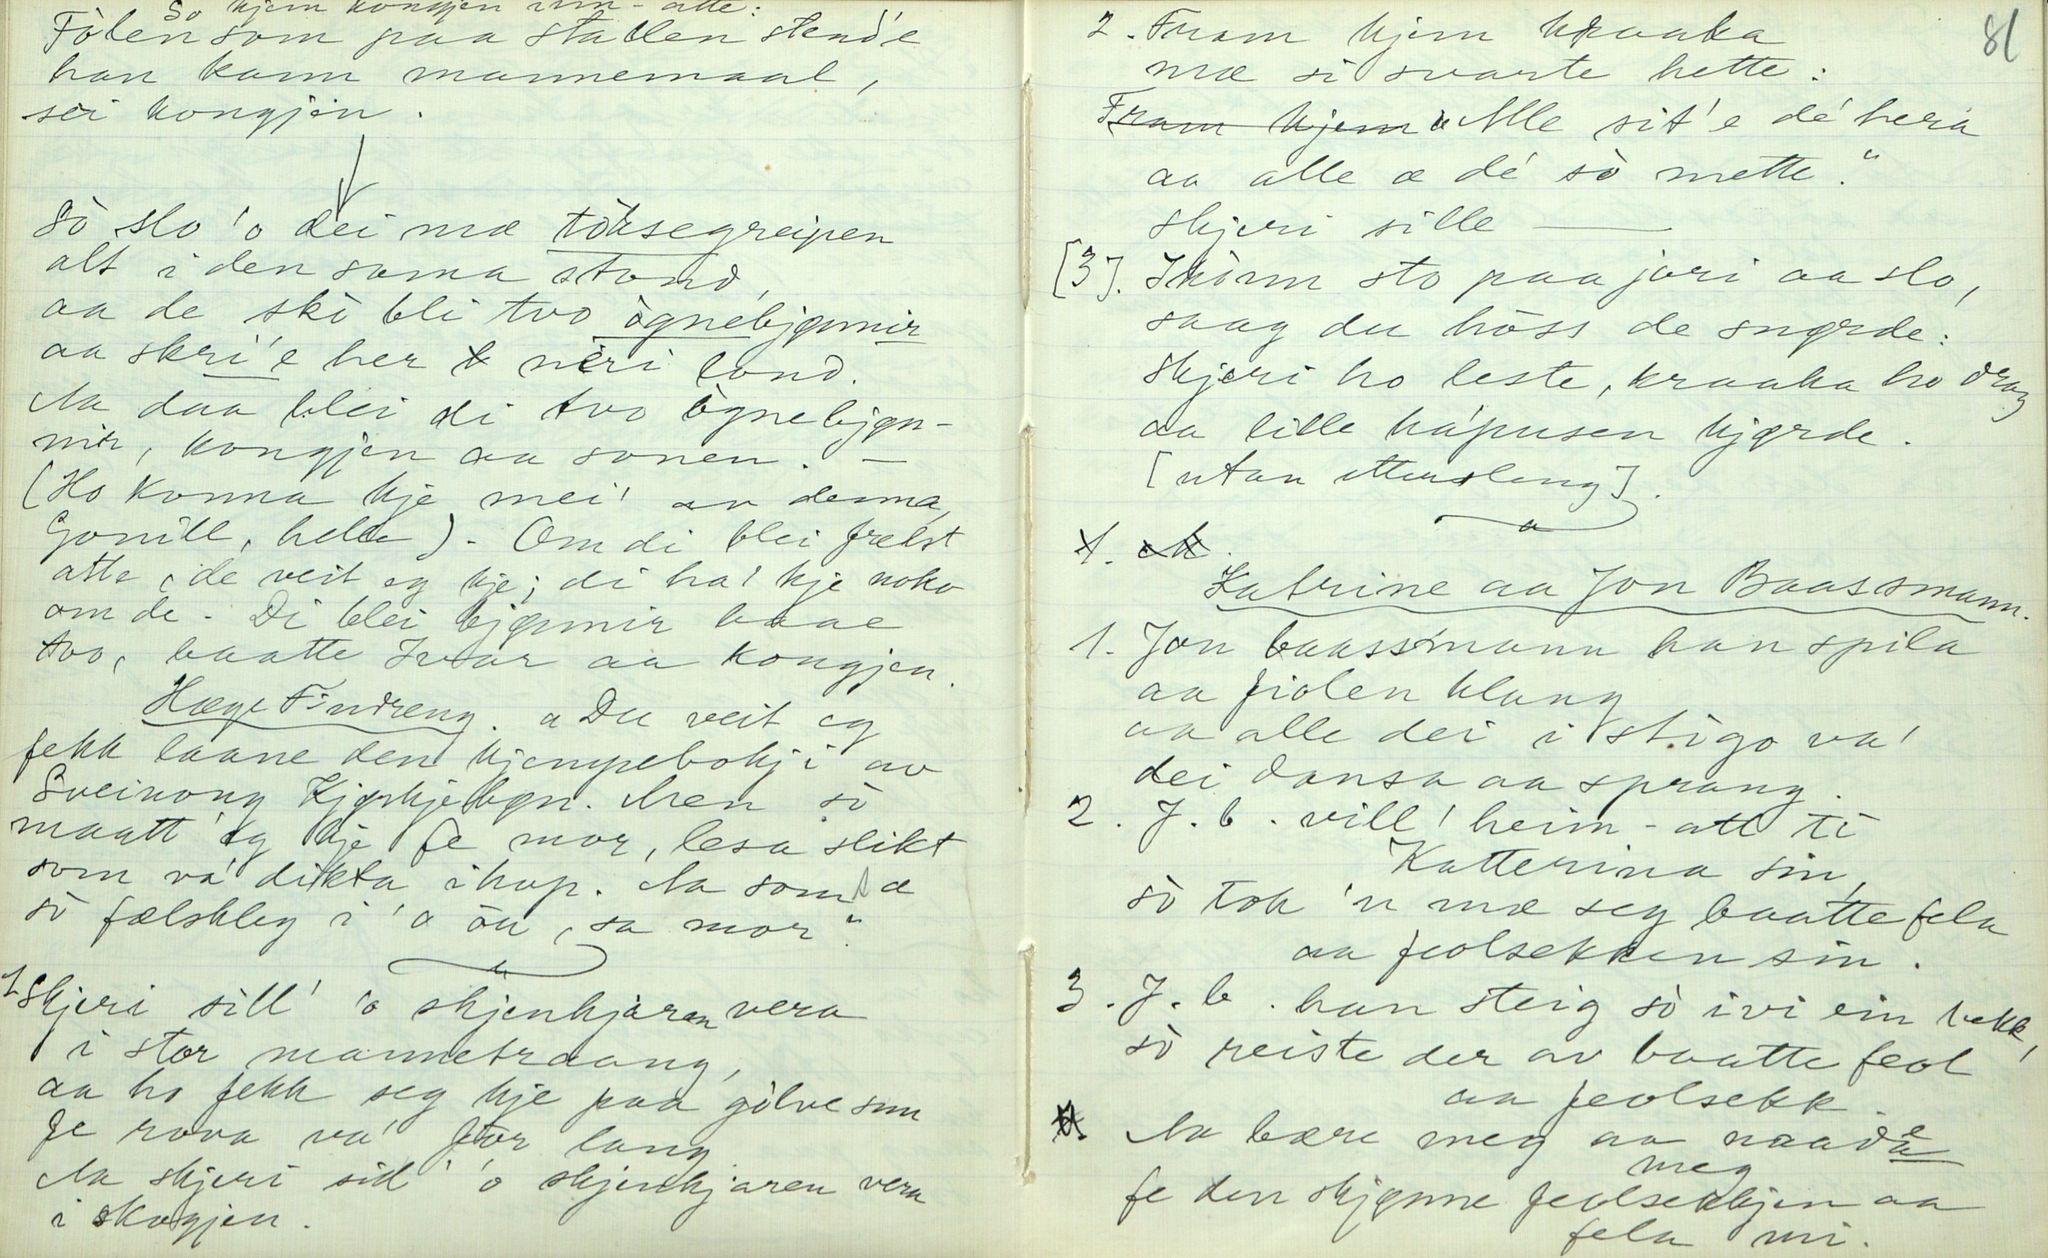 So kjem kongjen inn-atte:
Fòlen som paa stallen stend'e
han kann mannemaal,
sei kongjen.
Sò slo 'o dei mæ tòksegreipen
alt i den soma stond,
aa de ski bli tvo ògnebjønnir
aa skri'e her neri lond.
Aa daa blei di tvo ògnebjøn-
nir, kongjen aa sonen. —
(Ho konna kje mei' av denna,
Gonill, helle). - Om di blei frelst
atte, de veit eg kje; di ha' kje noko
om de. - Di blei bjønnir baae
tvo, baatte Ivar aa kongjen.
Hæge Findreng. "Du veit eg
fekk laane den kjempebokji av
Sveinong Kjørkjebøn. Men sò
maatt' eg kje fe mor, lesa slikt
som va' dikta ihop. Aa som æ
sò fælskleg i 'o òu, sa mor".
1 Skjeri sill' 'o skjenkjaren vera
i stor mannetraang,
aa ho fekk seg kje paa gòlve snu
fe rova va' for lang
Aa skjeri sill' 'o skjenkjaren vera
i skogjen.
81
2. Fram kjem kraaka
mæ si svarte hette:
Fram kjem "Alle sit'e dé hera
aa alle æ dé sò mette."
Skjeri sille —
[3]. Ikònn sto paa jori aa slo,
saag du hòss de snørde:
Skjeri ho leste, kraaka ho drog
aa lille hápusen kjørde.
[utan ettersleng].
Katrine aa Jon Baassmann.
1. Jon baassmann han spila
aa fiolen klang
aa alle dei i stigo va'
dei dansa aa sprang.
2. J. b. vill' heim-att ti
Katterina sin,
sò tok 'n mæ seg baatte fela
aa feolsekken sin.
3. J. b. han steig sò ivi ein bekk,
sò reiste der av baatte feol
aa feolsekk.
Aa bære meg aa naade
meg
fe den skjønne feolsekkjen aa
fela mi.